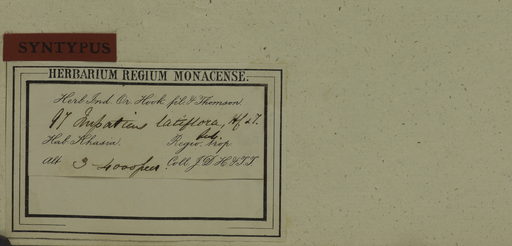 SYNTYPUS
HERBARIUM REGIUM MONACENSE.
Herb. Ind. Or. Hook. fil. & Thomson.
97 Impatiens latiflora, Hf & T.
Hab. Khasia Regio. trop
Alt. 3-4000 feet. Coll. J. D. H. & T. T.